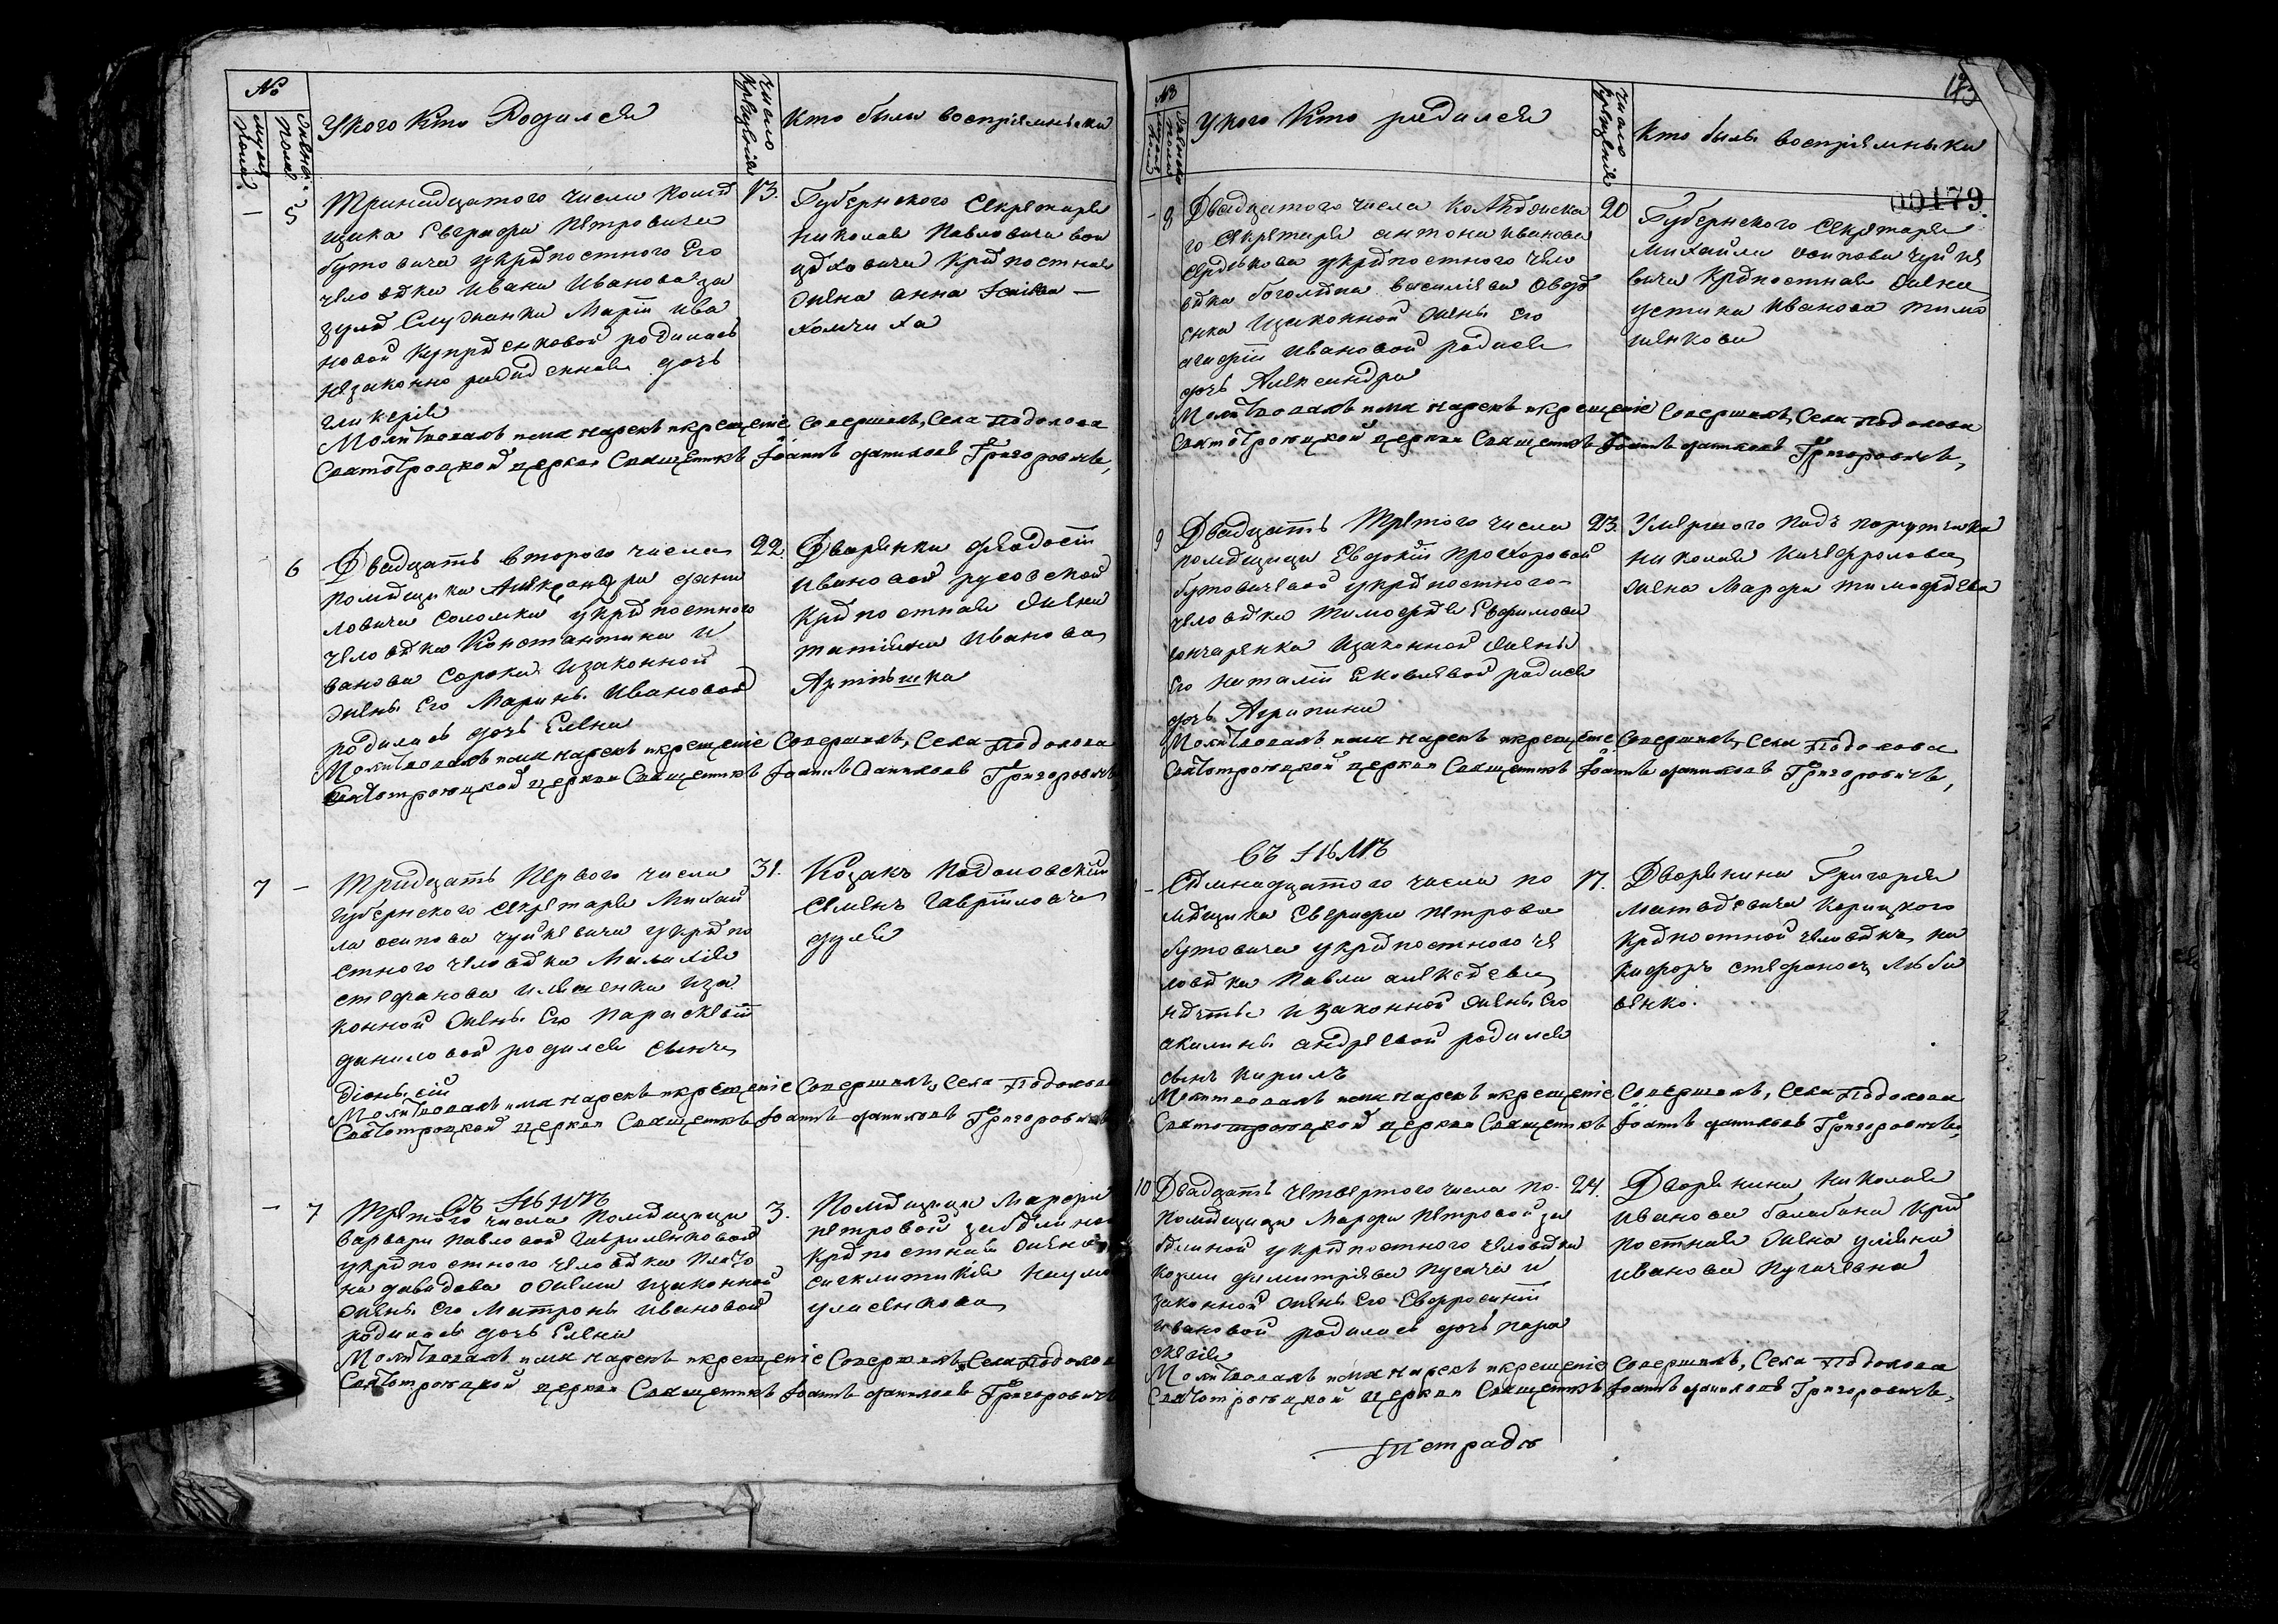 №
мужеска пола
женска пола
У кого кто Родился
число крещенія
кто были воспріемники
5
Тринадцатого числа помѣ
щика Евграфа Петровича
бутовича укрѣпостного Его
человѣка Ивана Иванова за
Служанки Марѳи Ива
новой родилась
незаконно рожденная дочь
гликерія
13.
Губернского Секретаря
николая Павловича вои
цѣховича Крѣпостная
жена анна
хомчиха
Молитвовалъ имя нарекъ и крещеніе Совершалъ, Села Подолова
Святотроцкой церкви Священникъ Іоаннъ даниловъ Григоровичъ,
6
Двадцать второго числа
помѣщика Александра дани
ловича соломки укрѣпостного
человѣка Константина И
ванова Сороки Изаконной
жены Его Марины Ивановой
родилась дочь Елена
22.
Дворянки феодосіи
Ивановой русовской
Крѣпостная жена
татіяна Иванова
Артюшка
Молитвовалъ имя нарекъ и крещеніе Совершалъ, Села Подолова
Святотроицкой церкви Священникъ Іоаннъ Даниловъ Григоровичъ
7
Тридцать Первого числа
губернского секретаря Михай
ла осипова чуйкевича укрѣпо
стного человѣка Малахія
стефанова иляшенка Иза
конной жены Его Параскевіи
даниловой родился сынъ
діонысій
31.
Козакъ Подоловскій
Семенъ Гавріиловъ
дуля
Молитвовалъ имя нарекъ и крещеніе Совершалъ, Села Подолова
Святотроцкой церкви Священникъ Іоаннъ даниловъ Григоровичъ
7
Въ Іюнѣ
Третого числа Помѣщицы
варвары павловой гавриленковой
укрѣпостного человѣка Плато
на давидова Изаконной
жены Его Матроны Ивановой
родилась дочь Елена
3.
Помѣщицы Марфы
петровой забѣлиной
крѣпостная жена
сигклитикія наумо
уласенкова
Молитвовалъ имя нарекъ и крещеніе Совершалъ, Села Подолова
Святотроицкой церкви Священникъ Іоаннъ даниловъ Григоровичъ
13
00179
№
мужеска пола
женска пола
У кого Кто родился
число крещенія
Кто были воспріемники
8
Двадцатого числа Колѣжска
го Секретаря антона Иванова
Сердюкова укрѣпостного чело
вѣка боголѣпа василіева Овдѣ
енка Изаконной жены Его
агафіи Ивановой родися
дочь Александра
20
Губернского Секретаря
Михайла осипова чуйке
вича Крѣпостная жена
устина Иванова тимо
шенкова
Молитвовалъ имя нарекъ и крещеніе Совершалъ, Села Подолова
Святотроицкой церкви Священникъ Іоаннъ даниловъ Григоровичъ,
9
Двадцать Третого числа
помѣщицы Евдокіи Прохоровой
бутовичевой укрѣпостного
человѣка тимофѣя Евфимова
гончаренка Изаконной жены
Его Наталіи Яковлевой родися
дочь Агрипина
23.
Умершого Подъ порутчика
николая
жена Марфа тимофѣева
Молитвовалъ имя нарекъ и крещеніе Совершалъ, Села Подолова
Святотроицкой церкви Священникъ Іоаннъ даниловъ Григоровичъ,
Въ Іюлѣ
Семнадцатого числа по
мѣщика Евграфа Петрова
бутовича укрѣпостного че
ловѣка Павла алексѣева
Изаконной жены Его
акилины андреевой родился
сынъ Кирилъ
17.
Дворянина Григорія
матвѣевича Корицкого
крѣпостной человѣкъ ни
кифоръ стефановъ люби
венко.
Молитвовалъ имя нарекъ и крещеніе Совершалъ, Села Подолова
Святотроицкой церкви Священникъ Іоаннъ даниловъ Григоровичъ,
10
Двадцать Четвертого числа по
помѣщицы Марфы Петровой за
бѣлиной укрѣпостного человѣка
козмы димитріева пугача и
законной жены Его Евфросиніи
Ивановой родилась дочь пара
скевія
24.
Дворянина Николая
иванова балабана крѣ
постная жена уліяна
Иванова Пугачевна
Молитвовалъ имя нарекъ и крещеніе Совершалъ, Села Подолова
Святотроицкой церкви Священникъ Іоаннъ даниловъ Григоровичъ,
тетрадь